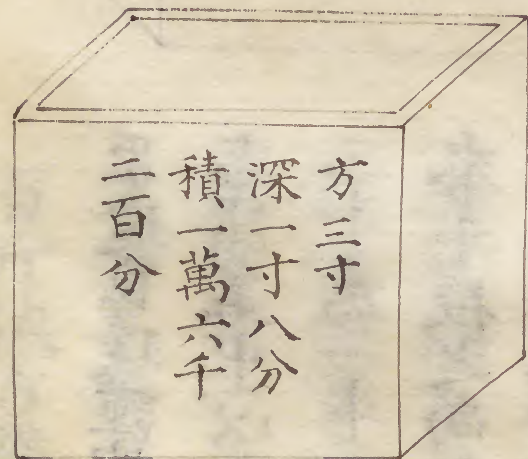 方三寸
深一寸八分
積一萬六千
二百分